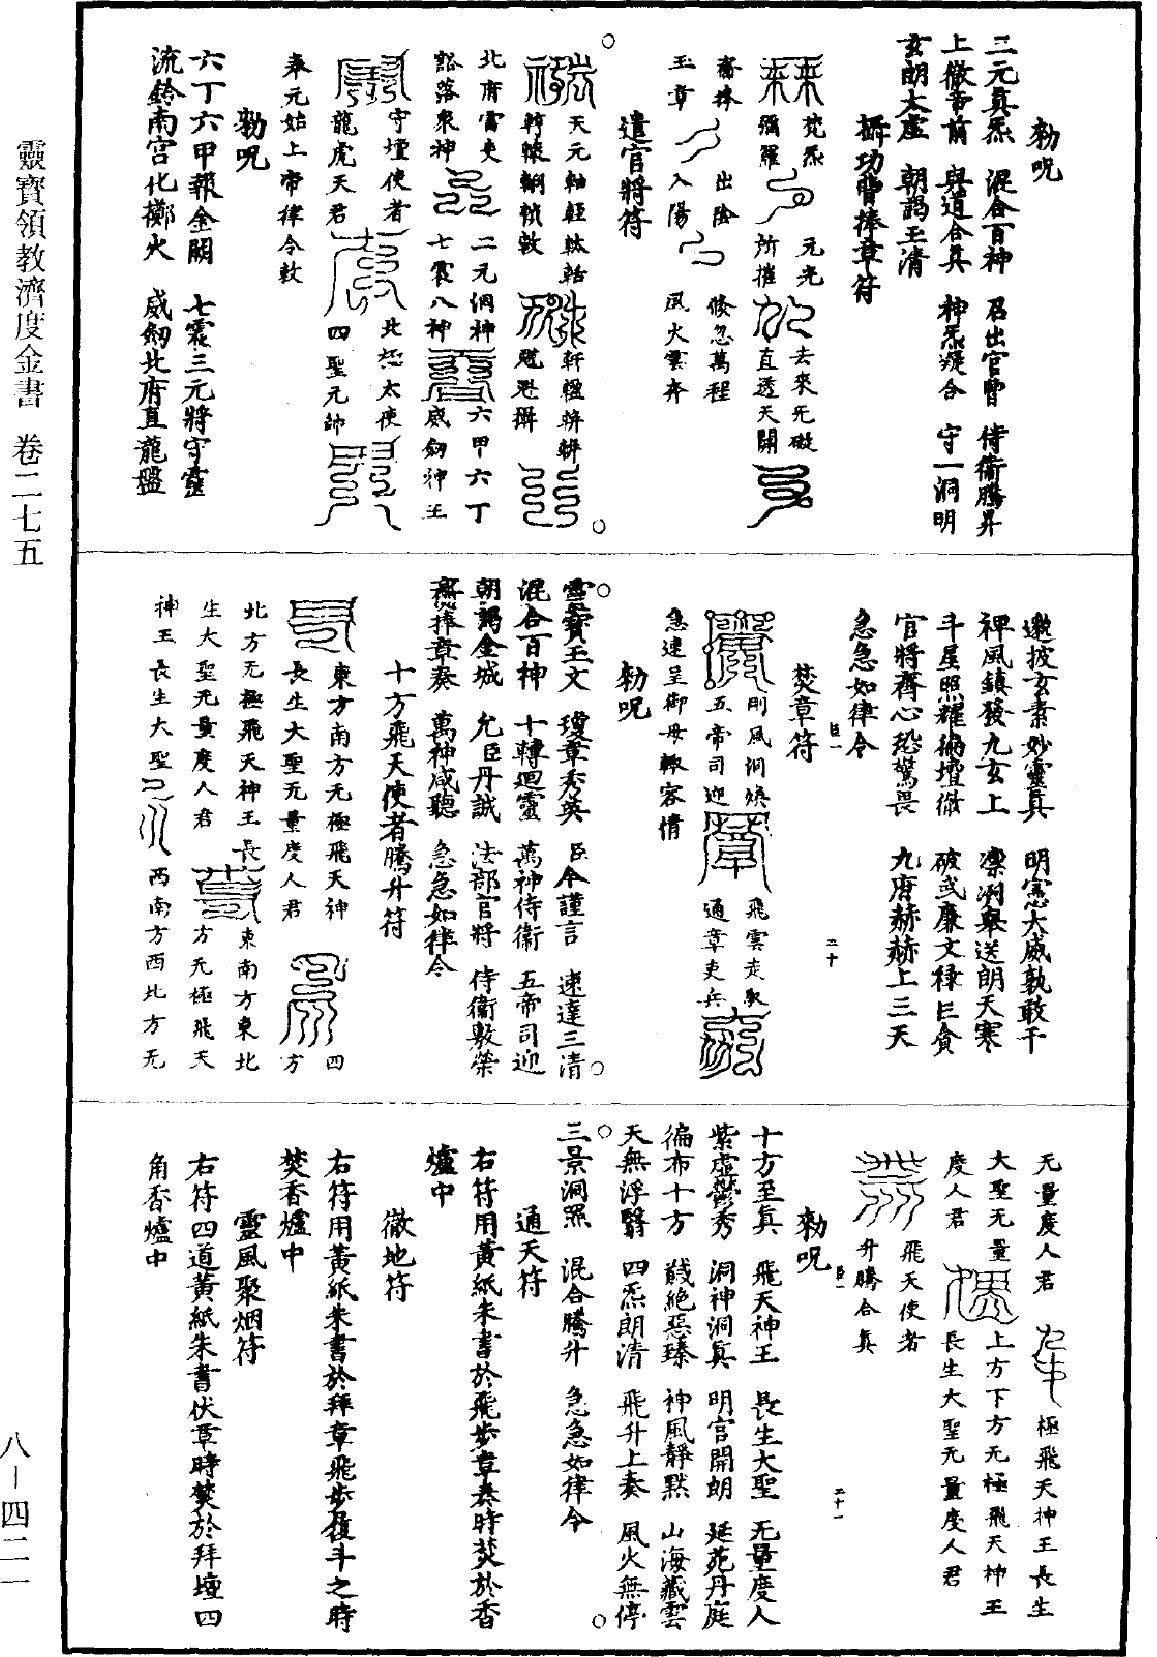 靈寶領教濟度金書 卷二七五
八—四二一
勑呪
二元真炁 混合百神 召出官曹 侍衞騰昇
上徹帝前 與道合真 神炁凝合 守一洞明
玄朗太虛 朝謁玉清
擲功曹捧章符
梵炁 元光 去來无礙
彌羅 所摧 直透天關
齋捧 出陰 倏忽萬程
玉章 入陽 風火雲奔
遣官將符
天元
北府富吏 二元洞神 六甲六丁
豁落衆神 七震八神 威劒神王
守壇使者 北極太使
龍虎天君 四聖元帥
奉元始上帝律令敕
勑呪
六丁六甲報金闕 七震三元將守靈
流鈴南宮化擲火 威劒北府直龍盤
邀披玄素妙靈真 明憲大威孰敢干
裨風鎮發九玄上 凜冽皋送朗天寒
斗星照耀衲壇徹 破武廉文祿巨貪
官將齊心恐驚畏 九府赫赫上三天
急急如律令 臣一
二十
焚章符
剛風洞煥 飛雲走馭
五帝司迎 通章吏兵
急速呈御毋輙容情
勑呪
靈寶玉文 瓊章秀英 臣今謹言 速達三清
混合百神 十轉迴靈 萬神侍衞 五帝司迎
朝謁金城 允臣丹誠 法部官將 侍衞敷榮
齎捧章奏 萬神咸聽 急急如律令
十方飛天使者騰升符
東方南方无極飛天神 四
長生大聖无量度人君 方
北方无極飛天神王長 東南方東北
生大聖无量度人君 方无極飛天
神王長生大聖 西南方西北方无
无量度人君 極飛天神王長生
大聖无量 上方下方无極飛天神王
度人君 長生大聖无量度人君
飛天使者
升騰合真
臣一
二十一
勑呪
十方至真 飛天神王 長生大聖 无量度人
紫虛鬱秀 洞神洞真 明宮開朗 延苑丹庭
徧布十方 馘絶惡臻 神風靜默 山海藏雲
天無浮翳 四炁朗清 飛升上奏 風火無停
三景洞照 混合騰升 急急如律令
通天符
右符用黃紙朱書於飛步章奏時焚於香
爐中
徹地符
右符用黃紙朱書於拜章飛步履斗之時
焚香爐中
靈風聚烟符
右符四道黃紙朱書伏章時焚於拜壇四
角香爐中